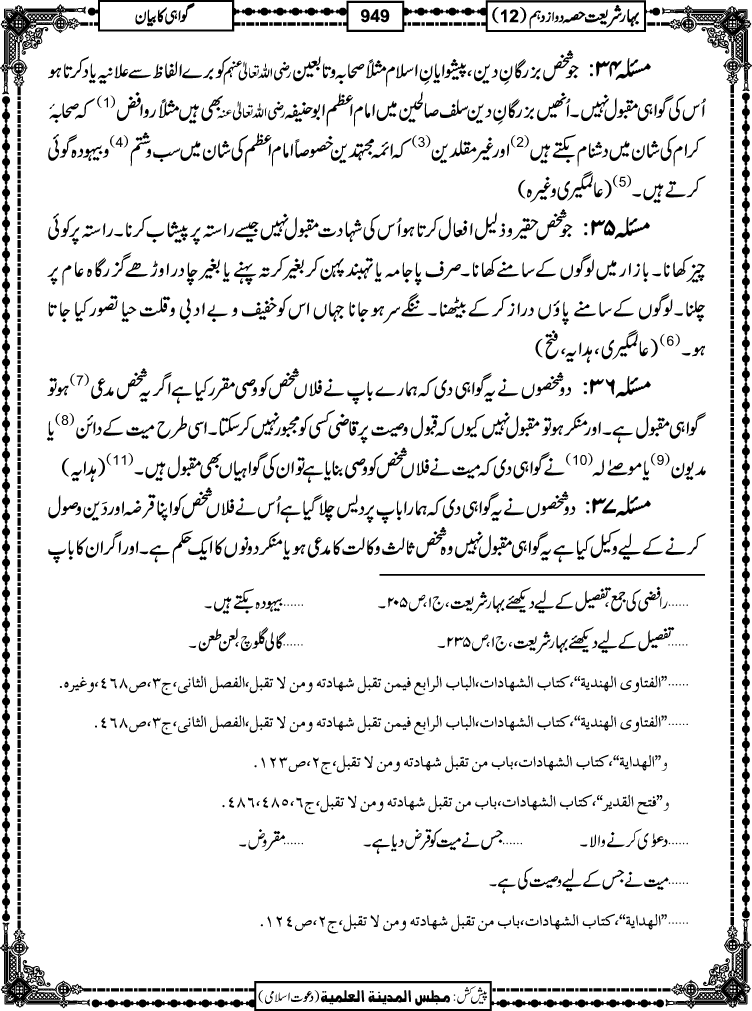 بہارِ شریعت حصہ دوازدہم (12)
949
گواہی کا بیان
مسئلہ ۳۴: جو شخص بزرگانِ دین، پیشوایانِ اسلام مثلاً صحابہ و تابعین رضی اللہ تعالیٰ عنہم کو برے الفاظ سے علانیہ یاد کرتا ہو
اُس کی گواہی مقبول نہیں۔ اُنھیں بزرگانِ دین سلف صالحین میں امام اعظم ابو حنیفہ رضی اللہ تعالیٰ عنہ بھی ہیں مثلاً روافض (1) کہ صحابۂ
کرام کی شان میں دشنام بکتے ہیں (2) اور غیر مقلدین (3) کہ ائمہ مجتہدین خصوصاً امام اعظم کی شان میں سب و شتم (4) و بیہودہ گوئی
کرتے ہیں۔ (5) (عالمگیری وغیرہ)
مسئلہ ۳۵: جو شخص حقیر و ذلیل افعال کرتا ہو اُس کی شہادت مقبول نہیں جیسے راستہ پر پیشاب کرنا۔ راستہ پر کوئی
چیز کھانا۔ بازار میں لوگوں کے سامنے کھانا۔ صرف پاجامہ یا تہبند پہن کر بغیر کرتہ پہنے یا بغیر چادر اوڑھے گزرگاہ عام پر
چلنا۔ لوگوں کے سامنے پاؤں دراز کر کے بیٹھنا۔ ننگے سر ہو جانا جہاں اس کو خفیف و بے ادبی و قلت حیا تصور کیا جاتا
ہو۔ (6) (عالمگیری، ہدایہ، فتح)
مسئلہ ۳۶: دو شخصوں نے یہ گواہی دی کہ ہمارے باپ نے فلاں شخص کو وصی مقرر کیا ہے اگر یہ شخص مدعی (7) ہو تو
گواہی مقبول ہے۔ اور منکر ہو تو مقبول نہیں کیوں کہ قبول وصیت پر قاضی کسی کو مجبور نہیں کر سکتا۔ اسی طرح میت کے دائن (8) یا
مدیون (9) یا موصیٰ لہ (10) نے گواہی دی کہ میت نے فلاں شخص کو وصی بنایا ہے تو ان کی گواہیاں بھی مقبول ہیں۔ (11) (ہدایہ)
مسئلہ ۳۷: دو شخصوں نے یہ گواہی دی کہ ہمارا باپ پردیس چلا گیا ہے اُس نے فلاں شخص کو اپنا قرضہ اور دَین وصول
کرنے کے لیے وکیل کیا ہے یہ گواہی مقبول نہیں وہ شخص ثالث وکالت کا مدعی ہو یا منکر دونوں کا ایک حکم ہے۔ اور اگر ان کا باپ
......رافضی کی جمع، تفصیل کے لیے دیکھئے بہارِ شریعت، ج۱، ص۲۰۵۔ ......بیہودہ بکتے ہیں۔
......تفصیل کے لیے دیکھئے بہارِ شریعت، ج۱، ص۲۳۵۔ ......گالی گلوچ، لعن طعن۔
......"الفتاوی الهندية"، کتاب الشهادات، الباب الرابع فيمن تقبل شهادته ومن لا تقبل، الفصل الثانی، ج۳، ص٤٦٨، وغيره.
......"الفتاوی الهندية"، کتاب الشهادات، الباب الرابع فيمن تقبل شهادته ومن لا تقبل، الفصل الثانی، ج۳، ص٤٦٨.
و"الهداية"، کتاب الشهادات، باب من تقبل شهادته ومن لا تقبل، ج۲، ص۱۲۳.
و"فتح القدير"، کتاب الشهادات، باب من تقبل شهادته ومن لا تقبل، ج٦، ٤٨٥، ٤٨٦.
......دعویٰ کرنے والا۔ ......جس نے میت کو قرض دیا ہے۔ ......مقروض۔
......میت نے جس کے لیے وصیت کی ہے۔
......"الهداية"، کتاب الشهادات، باب من تقبل شهادته ومن لا تقبل، ج۲، ص۱۲٤.
پیش کش: مجلس المدينة العلمية (دعوت اسلامی)